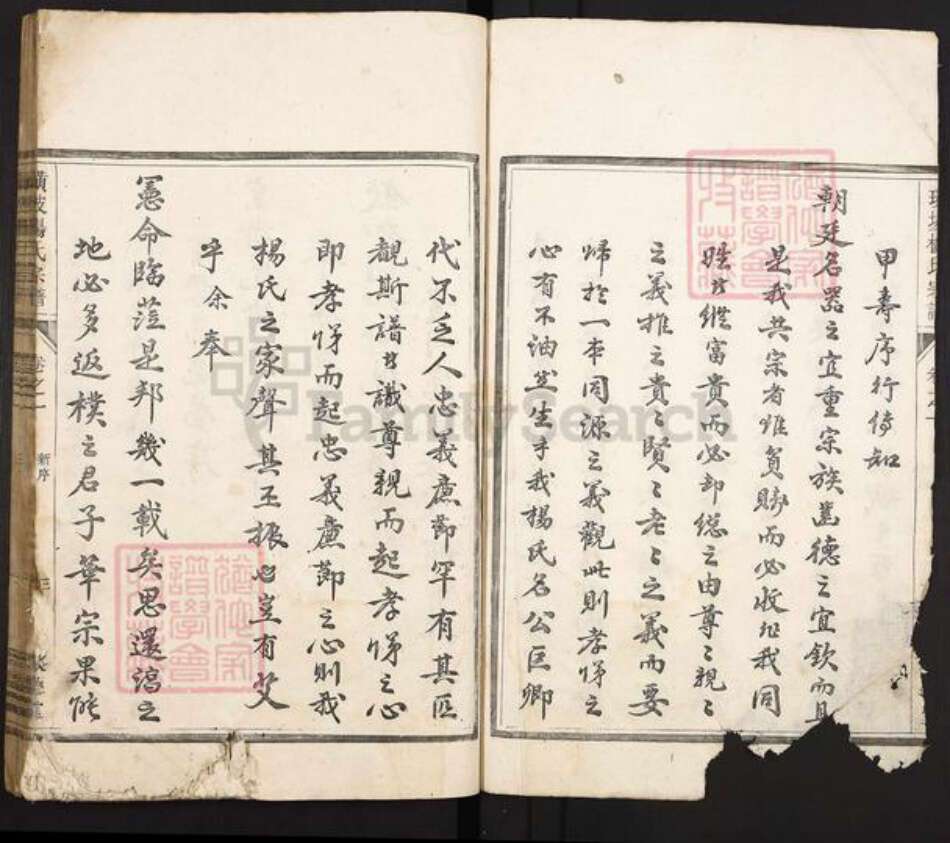 甲壽序行傳知
朝廷名器之宜重宗族舊德之宜欽而且
是我共宗者雖貧賤而必收非我同
姓者縱富貴而必却總之由尊尊親親
之義推之貴賢老老之義而要
歸於一本同源之義觀此則孝悌之
心有不油然生乎我楊氏名公巨卿
代不乏人忠義廉節罕有其匹
觀斯譜者識尊親而起孝悌之心
即孝悌而起忠義廉節之心則我
楊氏之家聲其丕振也豈有艾
乎余奉
憲命臨蒞是邦幾一載矣思還淳之
地必多返樸之君子華宗果能
橫坡楊氏宗譜 卷之一 新序 三
譜學會
譜學會
FamilySearch